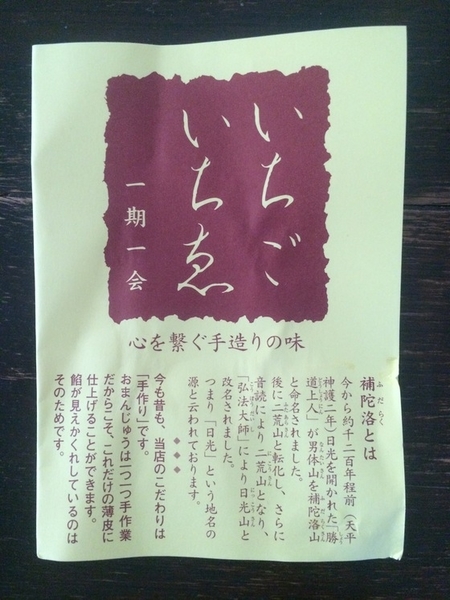 いちご
いちゑ
一期一会
心を繋ぐ手造りの味
ふだらく
補陀洛とは
今から約千二百年程前（天平
神護二年）日光を開かれた「勝
道上人」が男体山を補陀洛山
と命名されました。
後に二荒山と転化し、さらに
音読により二荒山となり、
「弘法大師」により日光山と
改名されました。
つまり「日光」という地名の
源と云われております。
今も昔も、当店のこだわりは
「手作り」です。
おまんじゅうは一つ一つ手作業
だからこそ、これだけの薄皮に
仕上げることができます。
餡が見えかくれしているのは
そのためです。